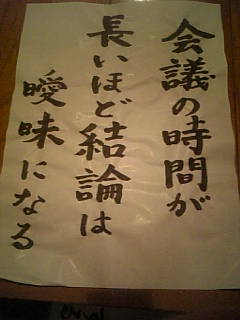 会議の時間が
長いほど結論は
曖昧になる